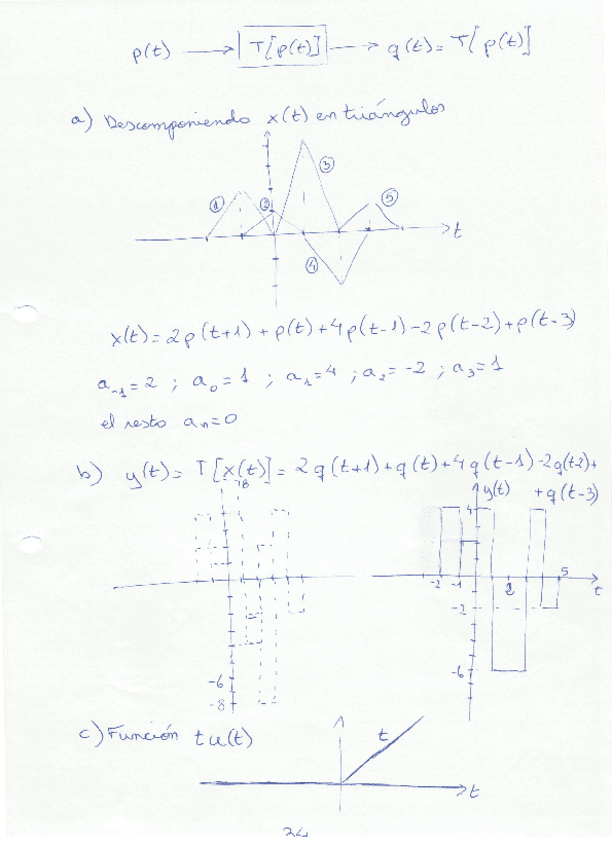 p(t) → T[p(t)] → q(t) = T[p(t)]
a) Descomponiendo x(t) en triángulos
① ② ③ ④ ⑤ t
x(t) = 2p(t+1) + p(t) + 4p(t-1) - 2p(t-2) + p(t-3)
a₋₁ = 2 ; a₀ = 1 ; a₁ = 4 ; a₂ = -2 ; a₃ = 1
el resto aₙ = 0
b) y(t) = T[x(t)] = 2q(t+1) + q(t) + 4q(t-1) - 2q(t-2) +
+ q(t-3)
8
y(t)
4
-2 -1 2 5 t
-2
-6 -6
-8
c) Función t u(t)
t
t
24